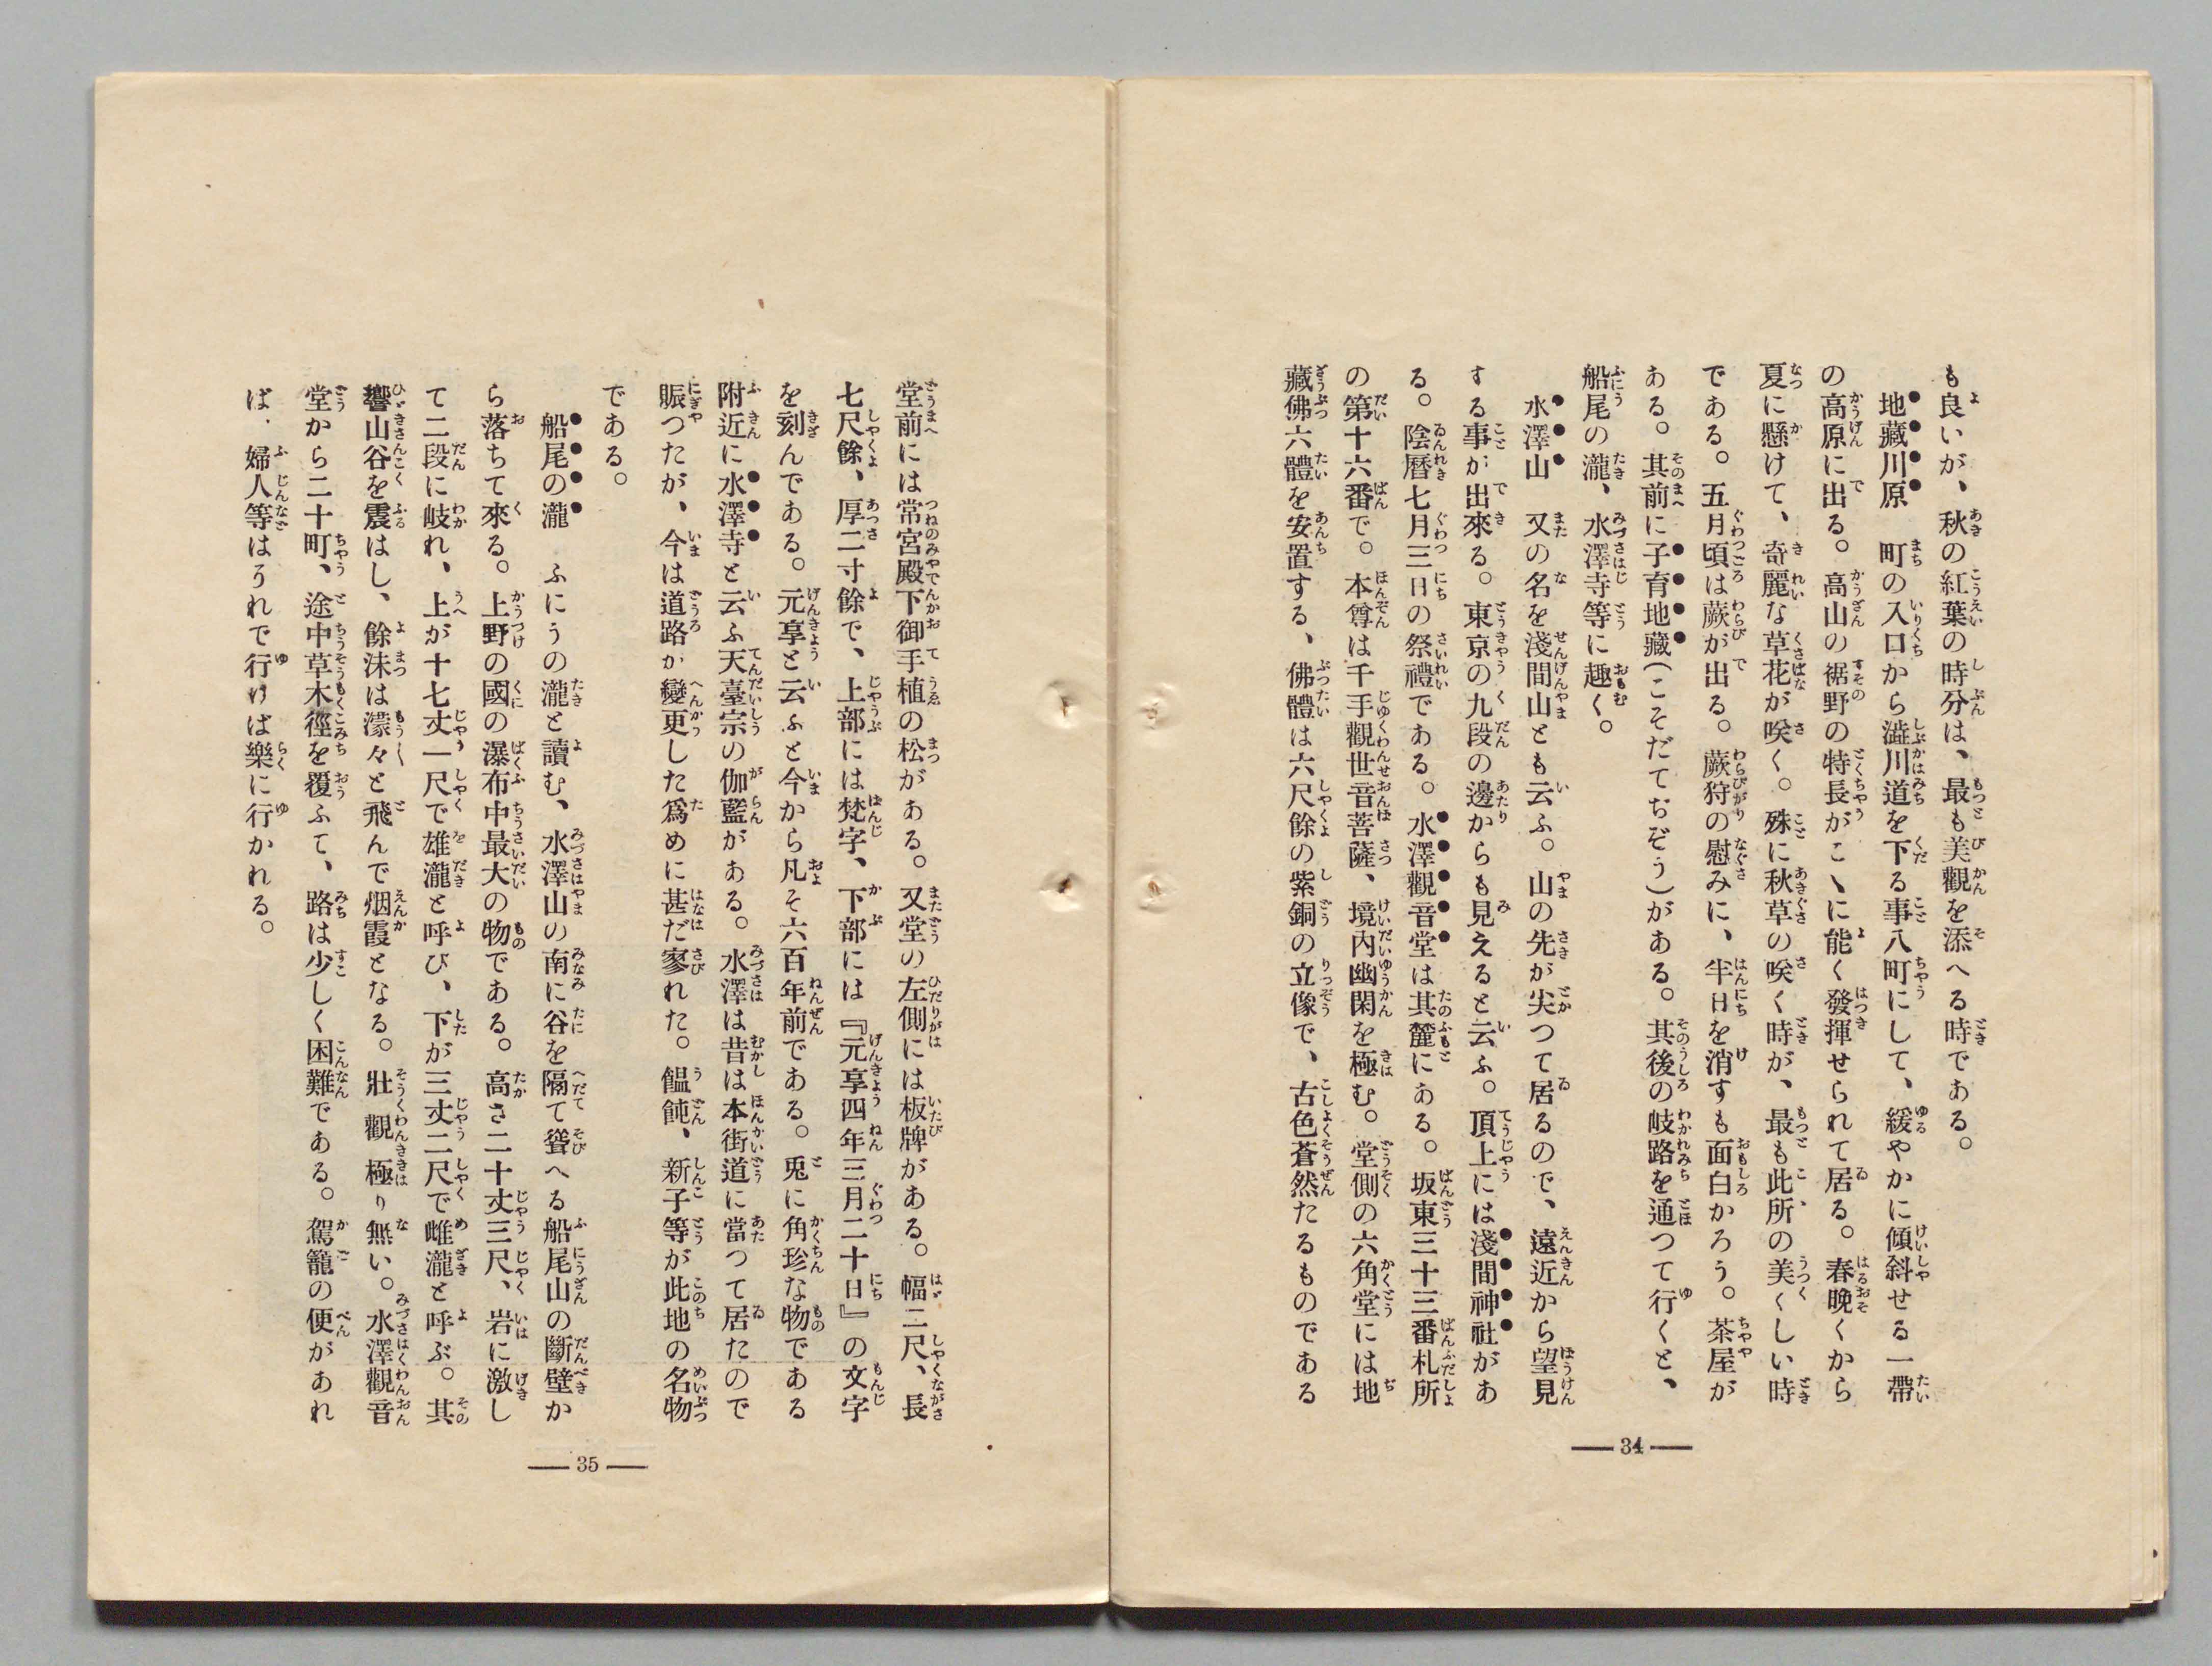 も良いが、秋の紅葉の時分は、最も美觀を添へる時である。
地藏川原　町の入口から澁川道を下る事八町にして、緩やかに傾斜せる一帶
の高原に出る。高山の裾野の特長がこゝに能く發揮せられて居る。春晩くから
夏に懸けて、奇麗な草花が咲く。殊に秋草の咲く時が、最も此所の美くしい時
である。五月頃は蕨が出る。蕨狩の慰みに、半日を消すも面白かろう。茶屋が
ある。其前に子育地藏(こそだてぢぞう)がある。其後の岐路を通つて行くと、
船尾の瀧、水澤寺等に趣く。
水澤山　又の名を淺間山とも云ふ。山の先が尖つて居るので、遠近から望見
する事が出來る。東京の九段の邊からも見えると云ふ。頂上には淺間神社があ
る。陰曆七月三日の祭禮である。水澤觀音堂は其麓にある。坂東三十三番札所
の第十六番で。本尊は千手觀世音菩薩、境內幽閑を極む。堂側の六角堂には地
藏佛六體を安置する、佛體は六尺餘の紫銅の立像で、古色蒼然たるものである
― 34 ―
堂前には常宮殿下御手植の松がある。又堂の左側には板碑がある。幅二尺、長
七尺餘、厚二寸餘で、上部には梵字、下部には『元享四年三月二十日』の文字
を刻んである。元享と云ふと今から凡そ六百年前である。兎に角珍な物である
附近に水澤寺と云ふ天臺宗の伽藍がある。水澤は昔は本街道に當つて居たので
賑つたが、今は道路が變更した爲めに甚だ寥れた。饂飩、新子等が此地の名物
である。
船尾の瀧　ふにうの瀧と讀む、水澤山の南に谷を隔て聳へる船尾山の斷壁か
ら落ちて來る。上野の國の瀑布中最大の物である。高さ二十丈三尺、岩に激し
て二段に岐れ、上が十七丈一尺で雄瀧と呼び、下が三丈二尺で雌瀧と呼ぶ。其
響山谷を震はし、餘沫は濛々と飛んで烟霞となる。壯觀極り無い。水澤觀音
堂から二十町、途中草木徑を覆ふて、路は少しく困難である。駕籠の便があれ
ば、婦人等はうれで行けば樂に行かれる。
― 35 ―